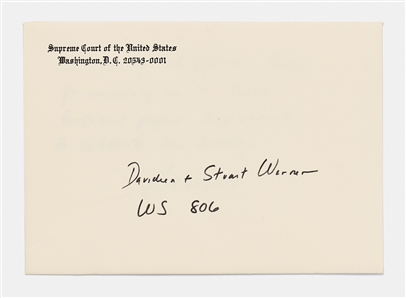 Supreme Court of the United States
Washington, D. C. 20543-0001
+ Stuart Warner
WS 806